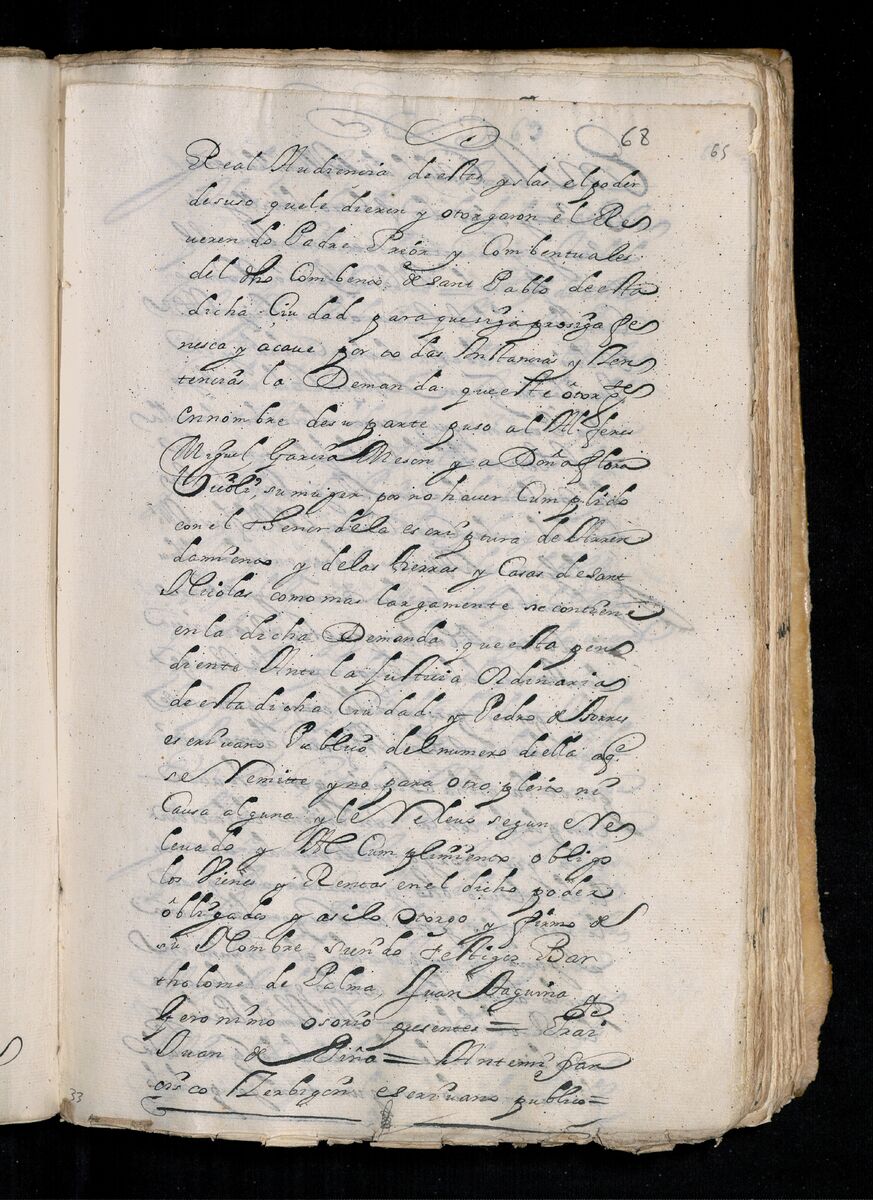 68
65
Real Audiencia destas yslas el poder
desuso quele dieren y otorgaron el Re
uerendo Padre Prior y Combentuales
del dho Combento de sant Pablo de esta
dicha Ciudad para que siga prosiga fe
nesca y acaue por todas Instancias y Sen
tencias la Demanda que este otorgte
en nombre desu parte puso al Alferes
Miguel Garcia Meson y a Doña flora
su muger por no hauer Cumplido
con el thenor dela escriptura de Arren
damiento y delas tierras y Casas de sant
Nicolas como mas largamente se contiene
en la dicha Demanda que esta pen
diente Ante la Justicia Ordinaria
de esta dicha Ciudad y Pedro de Torres
escriuano Publico del numero della aqe
se Remitte y no para otro pleito ni
Causa alguna y le Releuo segun es Re
leuado y Al Cumplimiento obligo
los Vienes y Rentas en el dicho poder
obligados y asi lo otorgo y firmo de
su Nombre siendo testigos Bar
tholome de Palma, Juan Staguina
Jeronimo osorio presentes = Frai
Juan de Piña = Antemi fran
cisco Zerbigon escriuano publico =
33